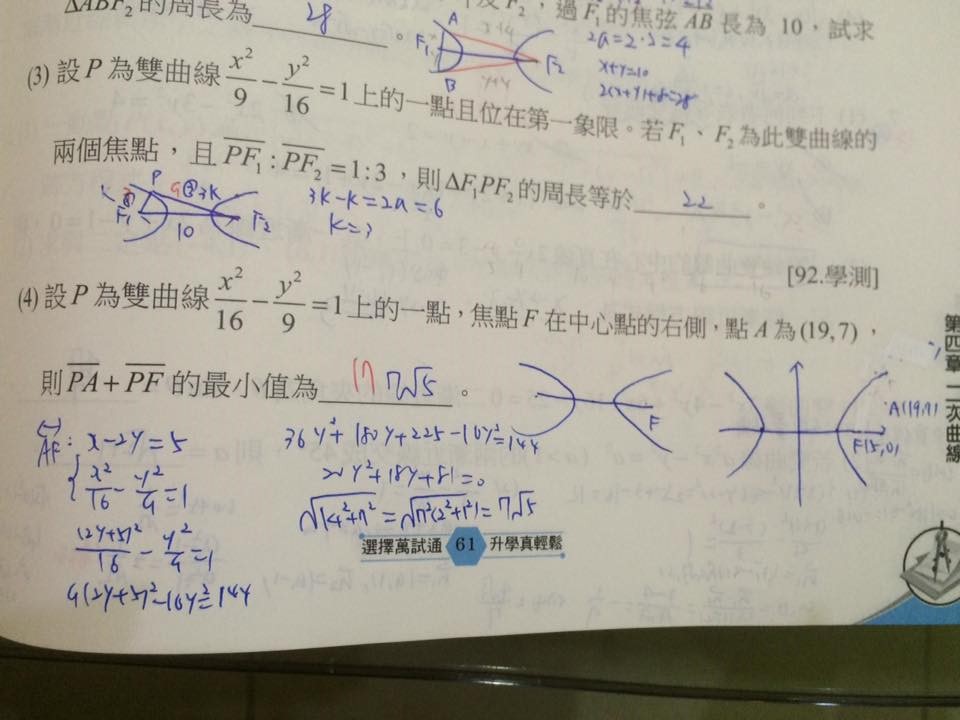 ΔABF₂ 的周長為 28 。
F₂,過F₁的焦弦AB長為 10,試求
A F₁ B F₂ x+4 y+4
2a=2·2=4
x+y=10
2(x+y)+8=28
(3) 設P為雙曲線 x²/9 − y²/16 = 1 上的一點且位在第一象限。若F₁、F₂為此雙曲線的
兩個焦點,且 PF₁ : PF₂ = 1:3,則ΔF₁PF₂的周長等於 22 。
P 9 3k F₁ 10 F₂
3k-k=2a=6
k=3
[92.學測]
(4) 設P為雙曲線 x²/16 − y²/9 = 1 上的一點,焦點F在中心點的右側,點A為(19,7),
則 PA + PF 的最小值為 17 7√5 。
F
A(19,7)
F(5,0)
AF: x-2y=5
x²/16 - y²/9 = 1
(2y+5)²/16 - y²/9 = 1
9(2y+5)²-16y²=144
36y²+180y+225-16y²=144
√(14²+7²) = √(7²(2²+1²)) = 7√5
選擇萬試通 61 升學真輕鬆
第四章 二次曲線